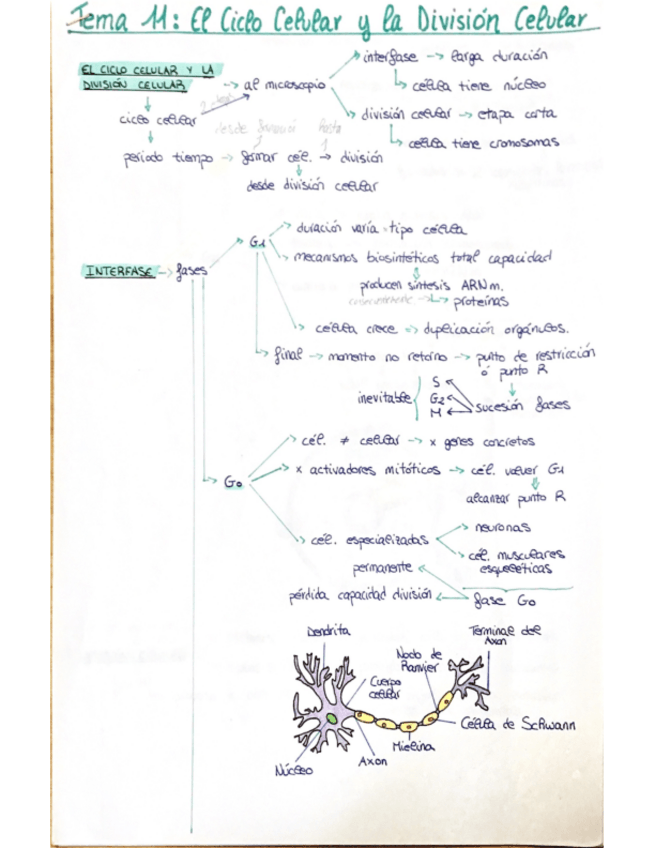 Tema 11: El Ciclo Celular y la División Celular
EL CICLO CELULAR Y LA
DIVISIÓN CELULAR
-> al microscopio
interfase -> larga duración
célula tiene núcleo
división celular -> etapa corta
célula tiene cromosomas
ciclo celular
desde hasta
periodo tiempo -> formar cél. -> división
desde división celular
INTERFASE -> fases
G1
duración varía = tipo célula
mecanismos biosintéticos total capacidad
producen síntesis ARNm.
proteínas
célula crece => duplicación orgánulos.
final -> momento no retorno -> punto de restricción
ó punto R
inevitable
S
G2
M
sucesión fases
G0
cél. ≠ celular -> x genes concretos
x activadores mitóticos -> cél. volver G1
alcanzar punto R
cél. especializadas
neuronas
cél. musculares
esqueléticas
permanente
pérdida capacidad división
fase G0
Dendrita
Terminal del
Axon
Nodo de
Ranvier
Cuerpo
celular
Célula de Schwann
Mielina
Axon
Núcleo